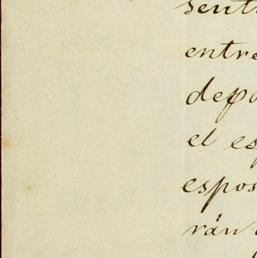 sent
entre
depo
el es
espos
rán